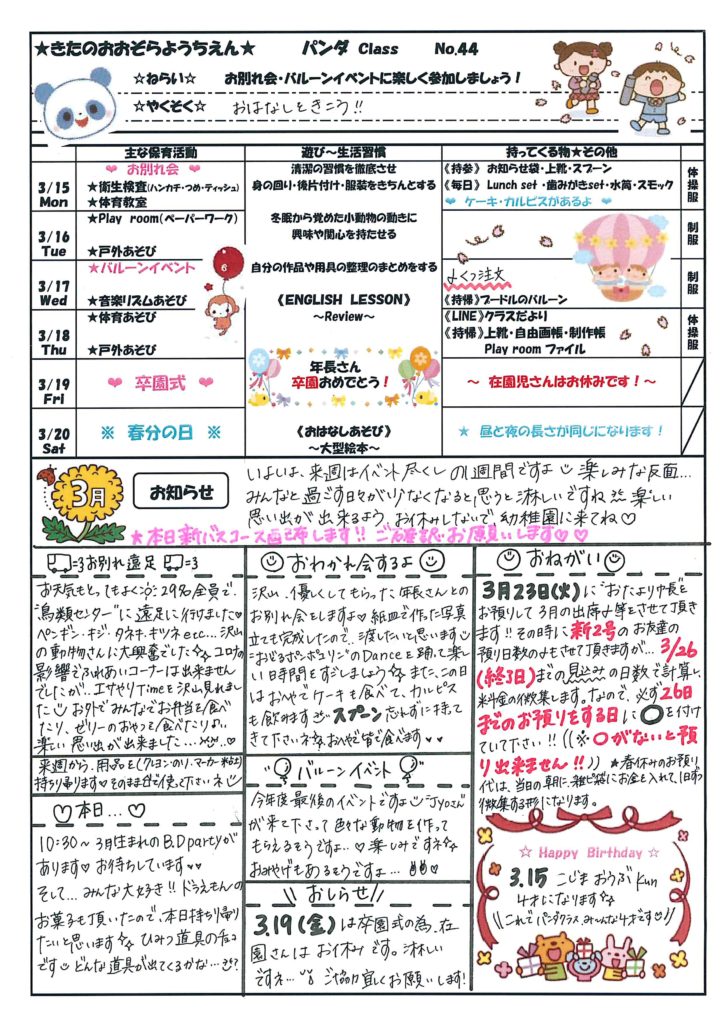 ★きたのおおぞらようちえん★ パンダ Class No,44
☆ねらい☆ お別れ会・バルーンイベントに楽しく参加しましょう！
☆やくそく☆ おはなしをきこう!!
主な保育活動 遊び～生活習慣 持ってくる物★その他
3/15 Mon
❤ お別れ会 ❤
★衛生検査(ハンカチ・つめ・ティッシュ)
★体育教室
清潔の習慣を徹底させ
身の回り・後片付け・服装をきちんとする
《持参》 お知らせ袋・上靴・スプーン
《毎日》 Lunch set ・歯みがきset・水筒・スモック
❤ ケーキ・カルピスがあるよ ❤
体操服
3/16 Tue
★Play room(ペーパーワーク)
★戸外あそび
冬眠から覚めた小動物の動きに
興味や関心を持たせる
制服
3/17 Wed
★バルーンイベント
★音楽リズムあそび
自分の作品や用具の整理のまとめをする
《ENGLISH LESSON》
～Review～
よくつ注文
《持帰》プードルのバルーン
制服
3/18 Thu
★体育あそび
★戸外あそび
《LINE》クラスだより
《持帰》上靴・自由画帳・制作帳
Play room ファイル
体操服
3/19 Fri
❤ 卒園式 ❤
年長さん
卒園おめでとう！
～ 在園児さんはお休みです！～
3/20 Sat
※ 春分の日 ※
《おはなしあそび》
～大型絵本～
★ 昼と夜の長さが同じになります！
3月
お知らせ
いよいよ、来週はイベント尽くしの1週間ですよ 楽しみな反面…
みんなと過ごす日々が少なくなると思うと淋しいですね 楽しい
思い出が出来るよう、お休みしないで幼稚園に来てね♡
★本日新バスコース配布します!! ご確認お願いします♡
=3お別れ遠足=3
お天気もとってもよく 29名全員で、
"鳥類センター"に遠足に行けました♡
ペンギン・キジ・タヌキ・キツネetc… 沢山
の動物さんに大興奮でした コロナの
影響でふれあいコーナーは出来ません
でしたが… エサやりTimeを沢山見れまし
た お外でみんなでお弁当を食べ
たり、ゼリーのおやつも食べたり
楽しい思い出が出来ました…
来週から、用品を(クレヨン・のり・マーカー・粘土)
持ち帰ります♡そのままお使い下さいネ
♡本日…♡
10:30～ 3月生まれのB.D partyが
あります♡お待ちしています♥♥
そして…みんな大好き!! ドラえもんの
お菓子も頂いたので、本日持ち帰り
たいと思います ひみつ道具のチョコ
です どんな道具が出てくるかな…？
おわかれ会するよ
沢山、優しくしてもらった年長さんとの
お別れ会をしますよ♡紙皿で作った写真
立ても完成したので…渡したいと思います
"おどるポンポコリン"のDanceを踊って楽し
い時間をすごしましょう また、この日
はおやつでケーキも食べて、カルピス
も飲めます スプーン忘れずに持って
きて下さいネ おへやで皆で食べます♥♥
バルーンイベント
今年度最後のイベントですよ "Jyoさん"
が来て下さって色々な動物を作って
もらえるそうですよ…♡楽しみですネ
おみやげもあるそうですよ…
\\ おしらせ //
3,19(金)は卒園式の為、在
園さんはお休みです。淋しい
ですネ… ご協力宜しくお願いします!
おねがい
3月23日(火)に"おたより中長"を
お預りして3月の出席〆等をさせて頂き
ます!! その時に新2号のお友達の
預り日数の〆もさせて頂きますが… 3/26
(終了日)までの見込みの日数で計算し、
料金の徴集します。なので、必ず26日
までのお預りをする日に○を付け
ていて下さい!! ((※○がないと預
り出来ません!!)) ★春休みのお預り
代は、当日の朝に、雑ビ袋にお金を入れて、1日ずつ
徴集する形になります。
☆ Happy Birthday ☆
3.15 こじま おうぶ Kun
4才になります
\\これでパンダクラス、みんな4才です♡//